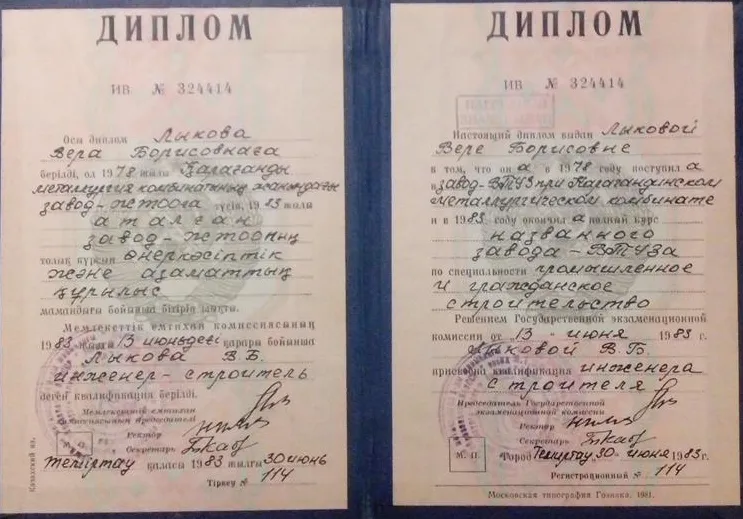 ДИПЛОМ
ИВ № 324414
Осы диплом Лыкова
Вера Борисовнаға
берілді, ол 1978 жылы Қарағанды
металлургия комбинатының жанындағы
завод-жтооға түсіп, 1983 жылы
аталған
завод-жтооның
толық курсын өнеркәсіптік
және азаматтық
құрылыс
мамандығы бойынша бітіріп шықты.
Мемлекеттік емтихан комиссиясының
1983 жылғы 13 июньдегі қарары бойынша
Лыкова В.Б.
инженер-строитель
деген квалификация берілді.
Мемлекеттік емтихан
комиссиясының председателі
Ректор
Секретарь
М. О.
Теміртау қаласы 1983 жылғы 30 июнь
Тіркеу № 114
Казахский яз.
ДИПЛОМ
ИВ № 324414
Настоящий диплом выдан Лыковой
Вере Борисовне
в том, что она в 1978 году поступила
в завод-ВТУЗ при Карагандинском
металлургическом комбинате
и в 1983 году окончила полный курс
названного
завода-ВТУЗа
по специальности промышленное
и гражданское
строительство
Решением Государственной экзаменационной
комиссии от "13" июня 1983 г.
Лыковой В.Б.
присвоена квалификация инженера
строителя
Председатель Государственной
экзаменационной комиссии
Ректор
Секретарь
М. П.
Город Темиртау "30" июня 1983 г.
Регистрационный № 114
Московская типография Гознака, 1981.